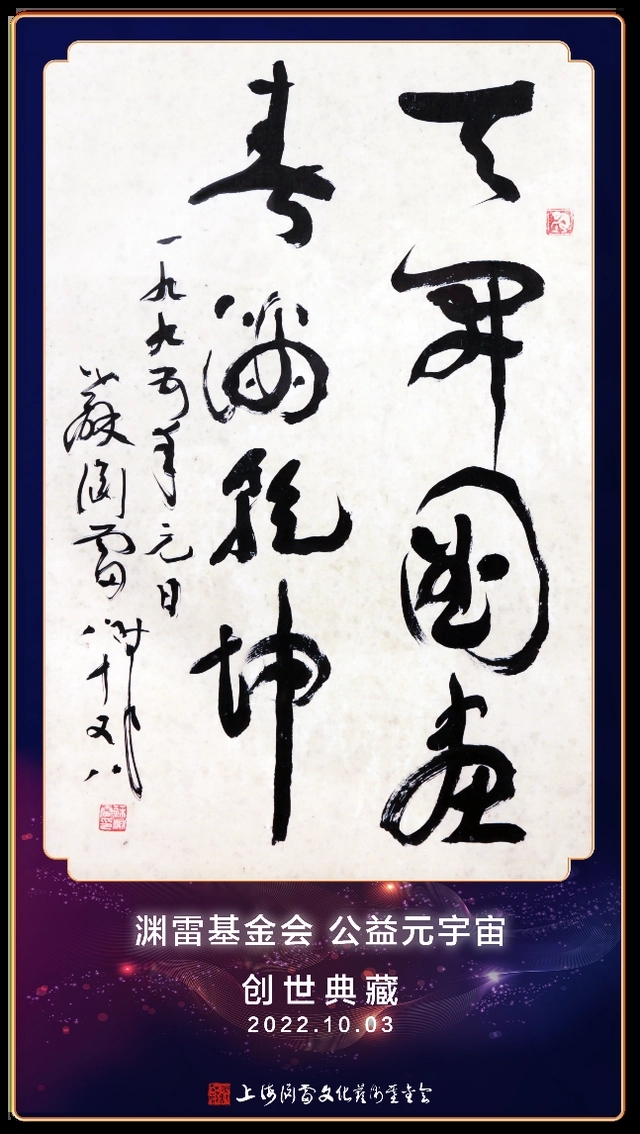 天開圖画
春滿乾坤
一九九五年元日
蘇渊雷
渊雷基金会 公益元宇宙
创世典藏
2022.10.03
上海渊雷文化艺术基金会